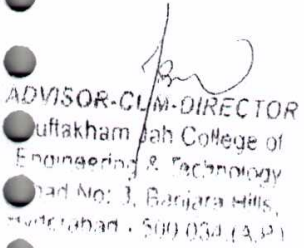 ADVISOR-CUM-DIRECTOR
Muffakham Jah College of
Engineering & Technology
Road No: 3, Banjara Hills,
Hyderabad - 500 034 (A.P.)